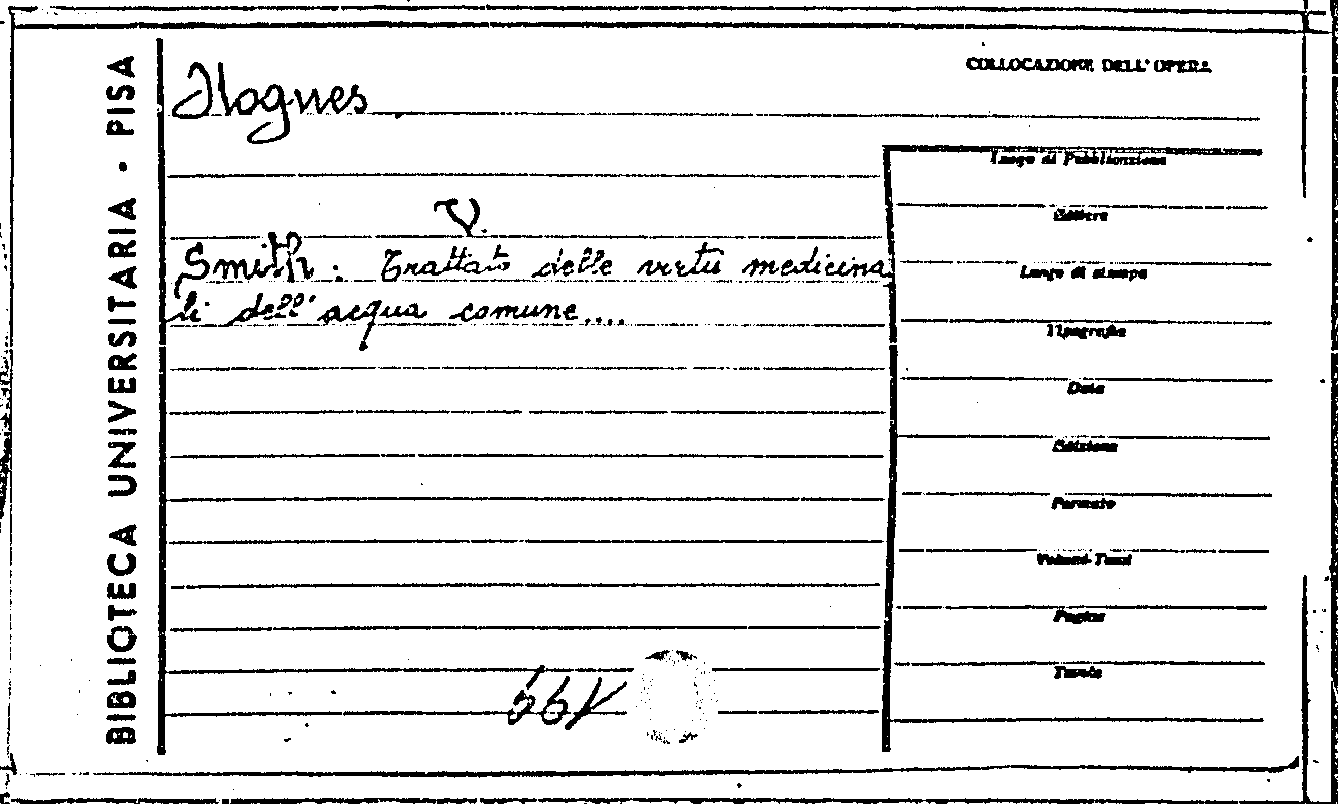 BIBLIOTECA UNIVERSITARIA · PISA
COLLOCAZIONE DELL'OPERA
Nogues.
V.
Smith: Trattato delle virtù medicina
li dell'acqua comune....
Luogo di Pubblicazione
Editore
Luogo di stampa
Tipografia
Data
Edizione
Formato
Volumi-Tomi
Pagine
Tavole